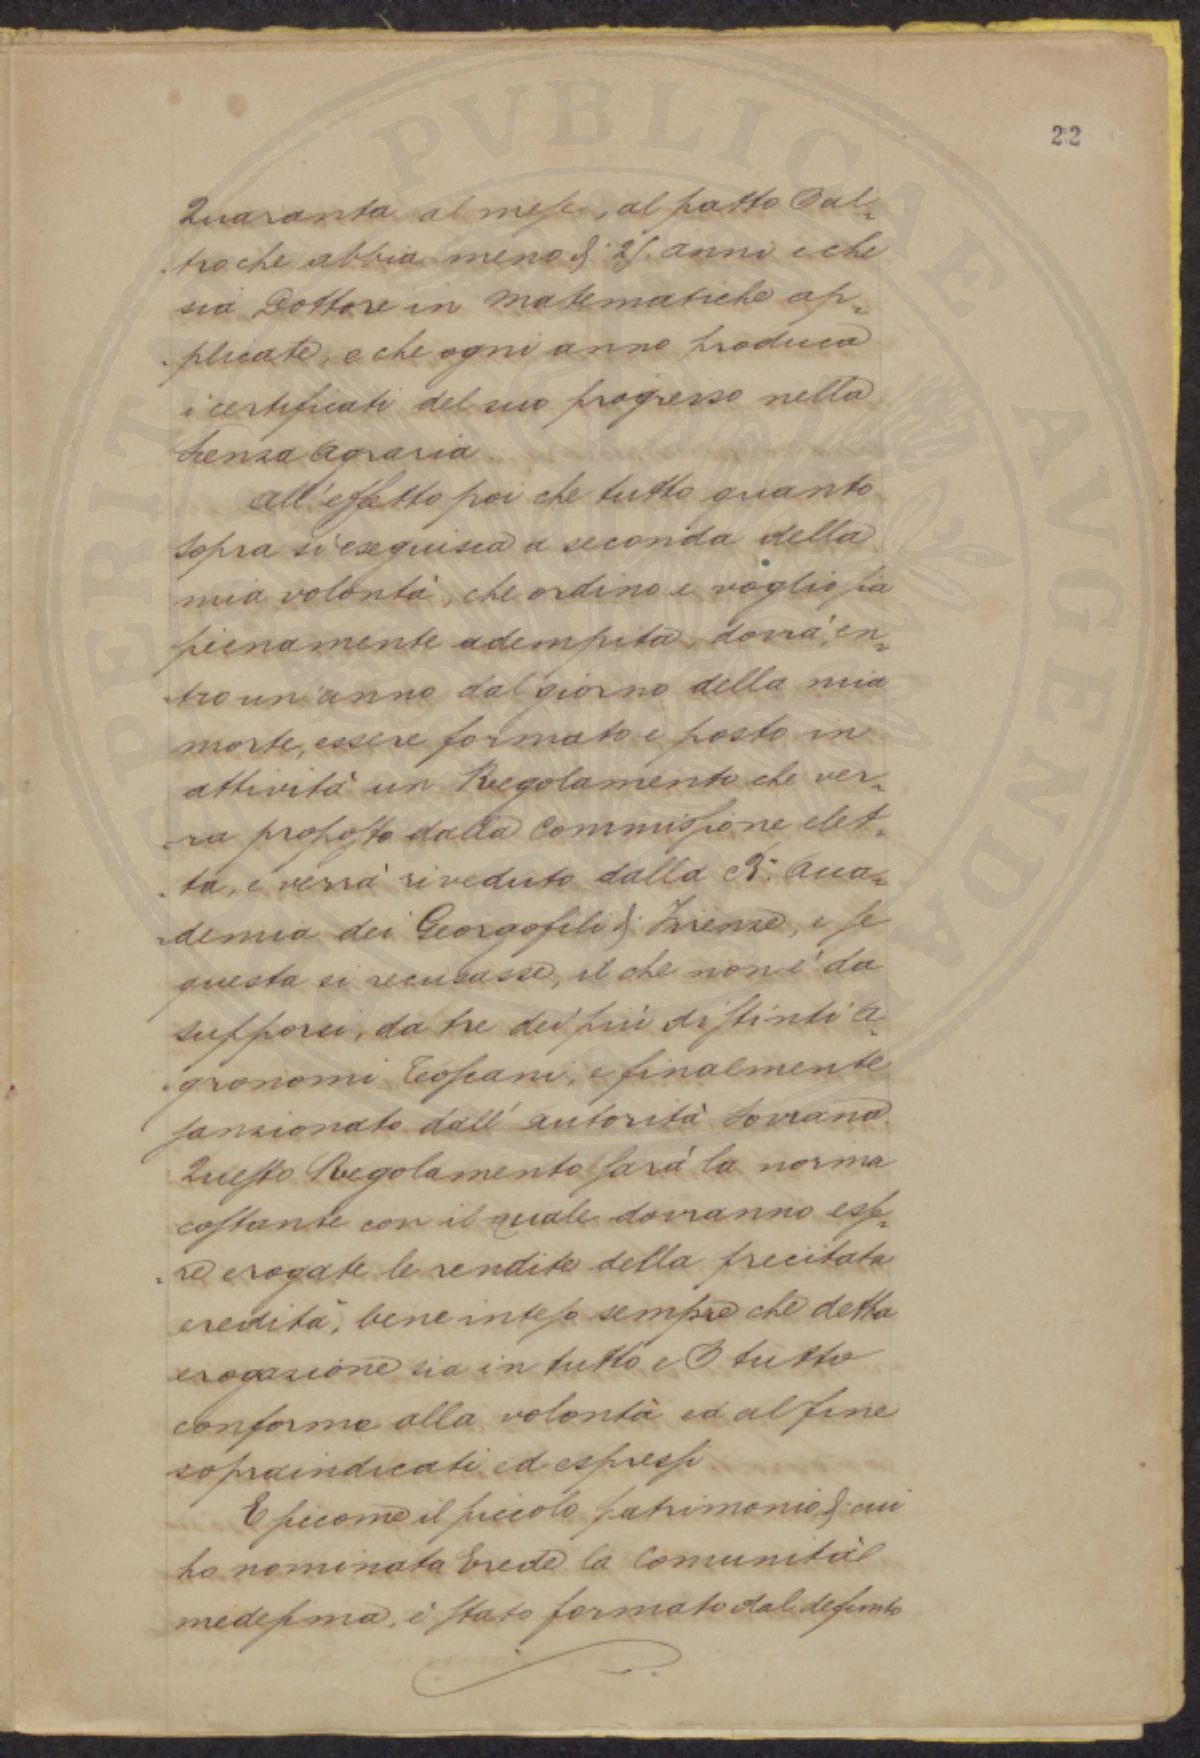 22
Quaranta al mese, al patto d'al-
-tro che abbia meno di 25. anni e che
sia Dottore in Matematiche ap-
-plicate, e che ogni anno produca
i certificati del suo progresso nella
Scenza Agraria.
All'effetto poi che tutto quanto
sopra si eseguisca a seconda della
mia volontà, che ordino e voglio sia
pienamente adempita, dovrà, en-
-tro un'anno dal giorno della mia
morte, essere formato e posto in
attività un Regolamento che ver-
-ra proposto dalla Commissione elet-
-ta, e verrà riveduto dalla R. Acca-
-demia dei Georgofili di Firenze, e se
questa si recusasse, il che non è da
supporsi, da tre dei più distinti A-
-gronomi Toscani, e finalmente
sanzionato dall'autorità Sovrana.
Questo Regolamento sarà la norma
costante con il quale dovranno esse-
-re erogate le rendite della precitata
eredità, bene inteso sempre che detta
erogazione sia in tutto e per tutto
conforme alla volontà ed al fine
sopraindicati ed espressi.
E siccome il piccolo patrimonio, di cui
ho nominata Erede la Comunità
medesima, è stato formato dal defunto
PERITURAE PVBLICAE AVGENDAE